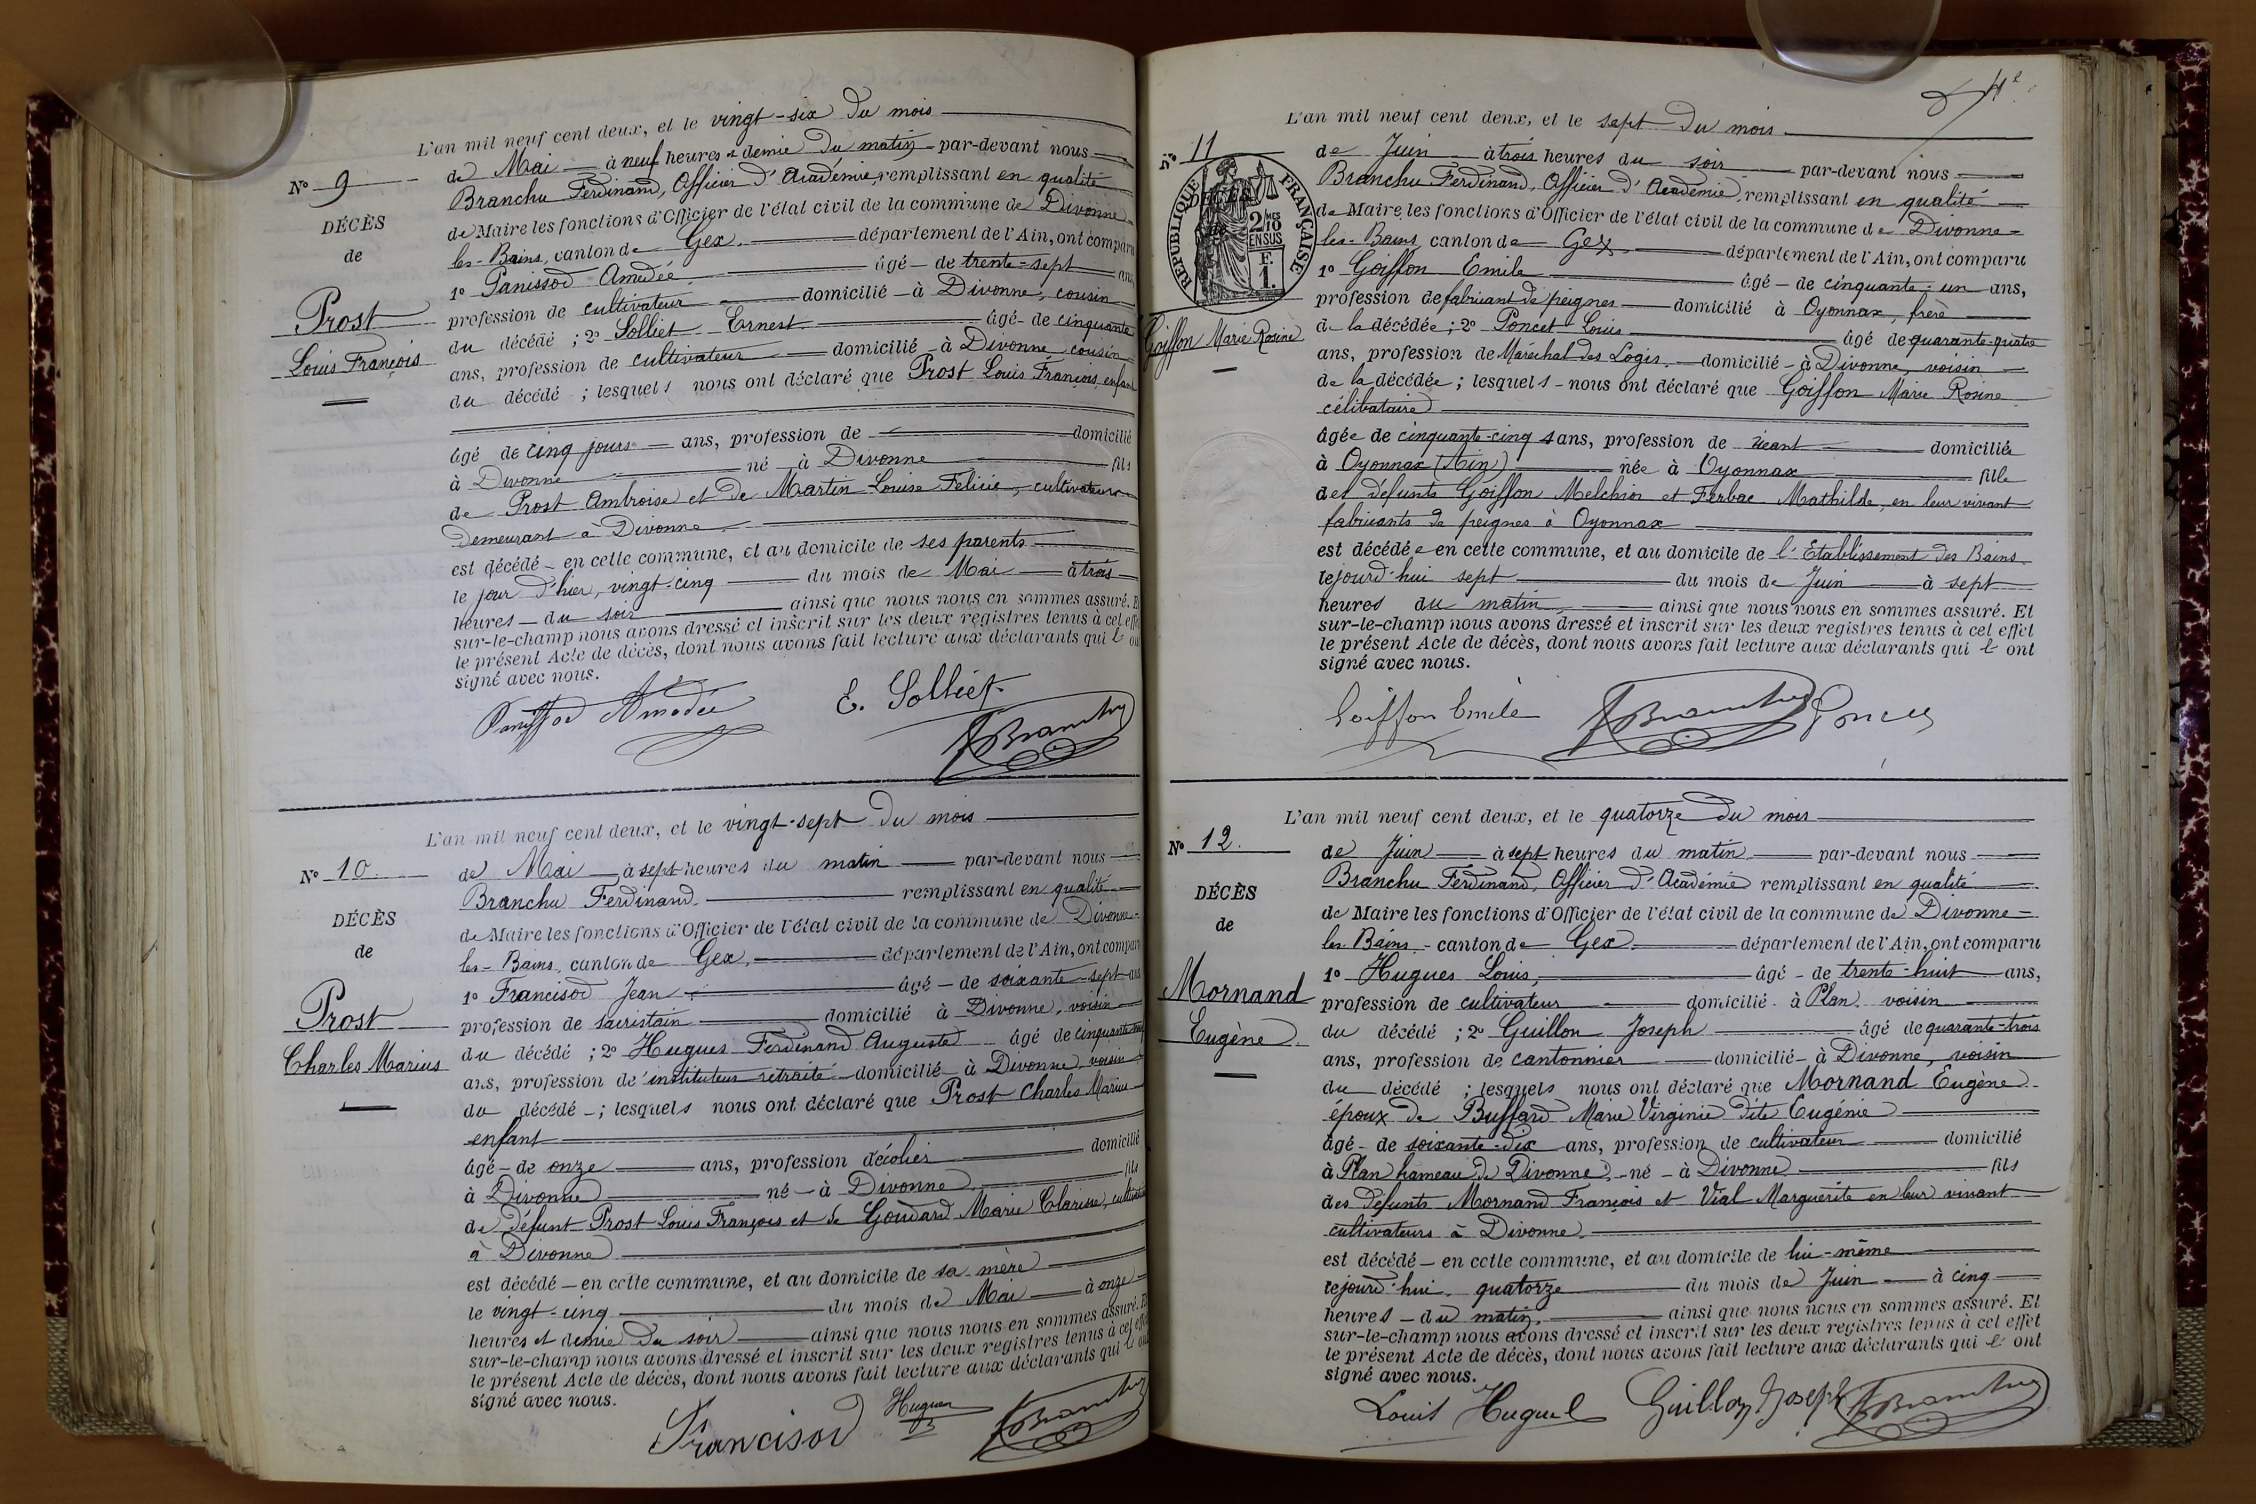 L'an mil neuf cent deux, et le vingt-six du mois
N° 9
de Mai à neuf heures et demie du matin par-devant nous
Branchu Ferdinand, Officier d'Académie, remplissant en qualité
DÉCÈS
de Maire les fonctions d'Officier de l'état civil de la commune de Divonne-
de
les-Bains, canton de Gex. département de l'Ain, ont comparu
1° Panissod Amédée âgé de trente-sept ans
Prost
profession de cultivateur domicilié à Divonne, cousin
Louis François
du décédé ; 2° Solliet Ernest âgé de cinquante
ans, profession de cultivateur domicilié à Divonne cousin
du décédé ; lesquels nous ont déclaré que Prost Louis François, enfant
âgé de cinq jours ans, profession de domicilié
à Divonne né à Divonne fils
de Prost Ambroise et de Martin Louise Félicie, cultivateurs
demeurant à Divonne
est décédé en cette commune, et au domicile de ses parents
le jour d'hier, vingt-cinq du mois de Mai à trois
heures du soir ainsi que nous nous en sommes assuré. Et
sur-le-champ nous avons dressé et inscrit sur les deux registres tenus à cet effet
le présent Acte de décès, dont nous avons fait lecture aux déclarants qui l' ont
signé avec nous.
Panissod Amédée E. Solliet
F Branchu
L'an mil neuf cent deux, et le vingt-sept du mois
N° 10
de Mai à sept heures du matin par-devant nous
Branchu Ferdinand. remplissant en qualité
DÉCÈS
de Maire les fonctions d'Officier de l'état civil de la commune de Divonne-
de
les-Bains, canton de Gex, département de l'Ain, ont comparu
1° Francisod Jean âgé de soixante-sept ans
Prost
profession de sacristain domicilié à Divonne, voisin
Charles Marius
du décédé ; 2° Hugues Ferdinand Auguste âgé de cinquante
ans, profession de instituteur retraité domicilié à Divonne, voisin
du décédé ; lesquels nous ont déclaré que Prost Charles Marius
enfant
âgé de onze ans, profession d'écolier domicilié
à Divonne né à Divonne fils
de défunt Prost Louis François et de Goudard Marie Clarisse, cultivatrice
à Divonne
est décédé en cette commune, et au domicile de sa mère
le vingt-cinq du mois de Mai à onze
heures et demie du soir ainsi que nous nous en sommes assuré. Et
sur-le-champ nous avons dressé et inscrit sur les deux registres tenus à cet effet
le présent Acte de décès, dont nous avons fait lecture aux déclarants qui l' ont
signé avec nous.
Francisod Hugues F Branchu
4e
L'an mil neuf cent deux, et le sept du mois
N° 11
de Juin à trois heures du soir par-devant nous
Branchu Ferdinand, Officier d'Académie, remplissant en qualité
RÉPUBLIQUE FRANÇAISE
DÉCÈS
de
2/10 MES EN SUS
F. 1.
de Maire les fonctions d'Officier de l'état civil de la commune de Divonne-
les-Bains canton de Gex département de l'Ain, ont comparu
1° Goiffon Emile âgé de cinquante-un ans,
profession de fabricant de peignes domicilié à Oyonnax, frère
Goiffon Marie Rosine
de la décédée ; 2° Poncet Louis âgé de quarante-quatre
ans, profession de Maréchal des Logis. domicilié à Divonne, voisin
de la décédée ; lesquels nous ont déclaré que Goiffon Marie Rosine
célibataire
âgée de cinquante-cinq ans, profession de domiciliée
à Oyonnax (Ain) née à Oyonnax fille
des défunts Goiffon Melchior et Mathilde, en leur vivant
fabricants de peignes à Oyonnax
est décédée en cette commune, et au domicile de l'Etablissement des Bains
cejourd'hui sept du mois de Juin à sept
heures du matin ainsi que nous nous en sommes assuré. Et
sur-le-champ nous avons dressé et inscrit sur les deux registres tenus à cet effet
le présent Acte de décès, dont nous avons fait lecture aux déclarants qui l' ont
signé avec nous.
Goiffon Emile F Branchu Poncet
L'an mil neuf cent deux, et le quatorze du mois
N° 12.
de Juin à sept heures du matin par-devant nous
Branchu Ferdinand, Officier d'Académie remplissant en qualité
DÉCÈS
de Maire les fonctions d'Officier de l'état civil de la commune de Divonne-
de
les Bains - canton de Gex département de l'Ain, ont comparu
1° Hugues Louis, âgé de trente-huit ans,
Mornand
profession de cultivateur domicilié à Plan. voisin
Eugène
du décédé ; 2° Guillon Joseph âgé de quarante-trois
ans, profession de cantonnier domicilié à Divonne, voisin
du décédé ; lesquels nous ont déclaré que Mornand Eugène
époux de Buffard Marie Virginie dite Eugénie
âgé de soixante-dix ans, profession de cultivateur domicilié
à Plan hameau de Divonne, né à Divonne fils
des défunts Mornand François et Vial Marguerite en leur vivant
cultivateurs à Divonne.
est décédé en cette commune, et au domicile de lui-même
cejourd'hui quatorze du mois de Juin à cinq
heures du matin. ainsi que nous nous en sommes assuré. Et
sur-le-champ nous avons dressé et inscrit sur les deux registres tenus à cet effet
le présent Acte de décès, dont nous avons fait lecture aux déclarants qui l' ont
signé avec nous.
Louis Hugues Guillon Joseph F Branchu